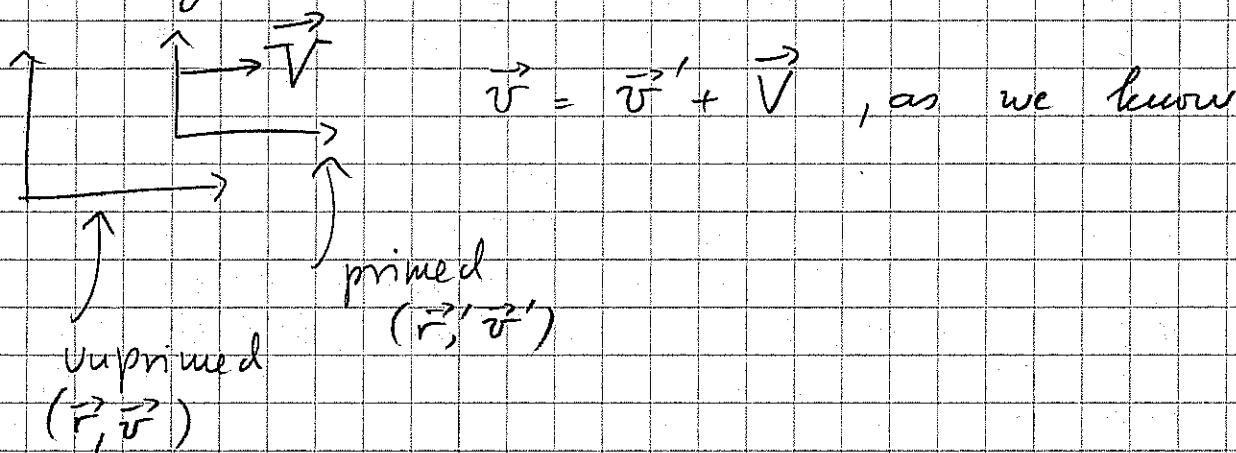 V⃗
v⃗ = v⃗' + V⃗ , as we know
primed
(r⃗,' v⃗')
unprimed
(r⃗, v⃗)